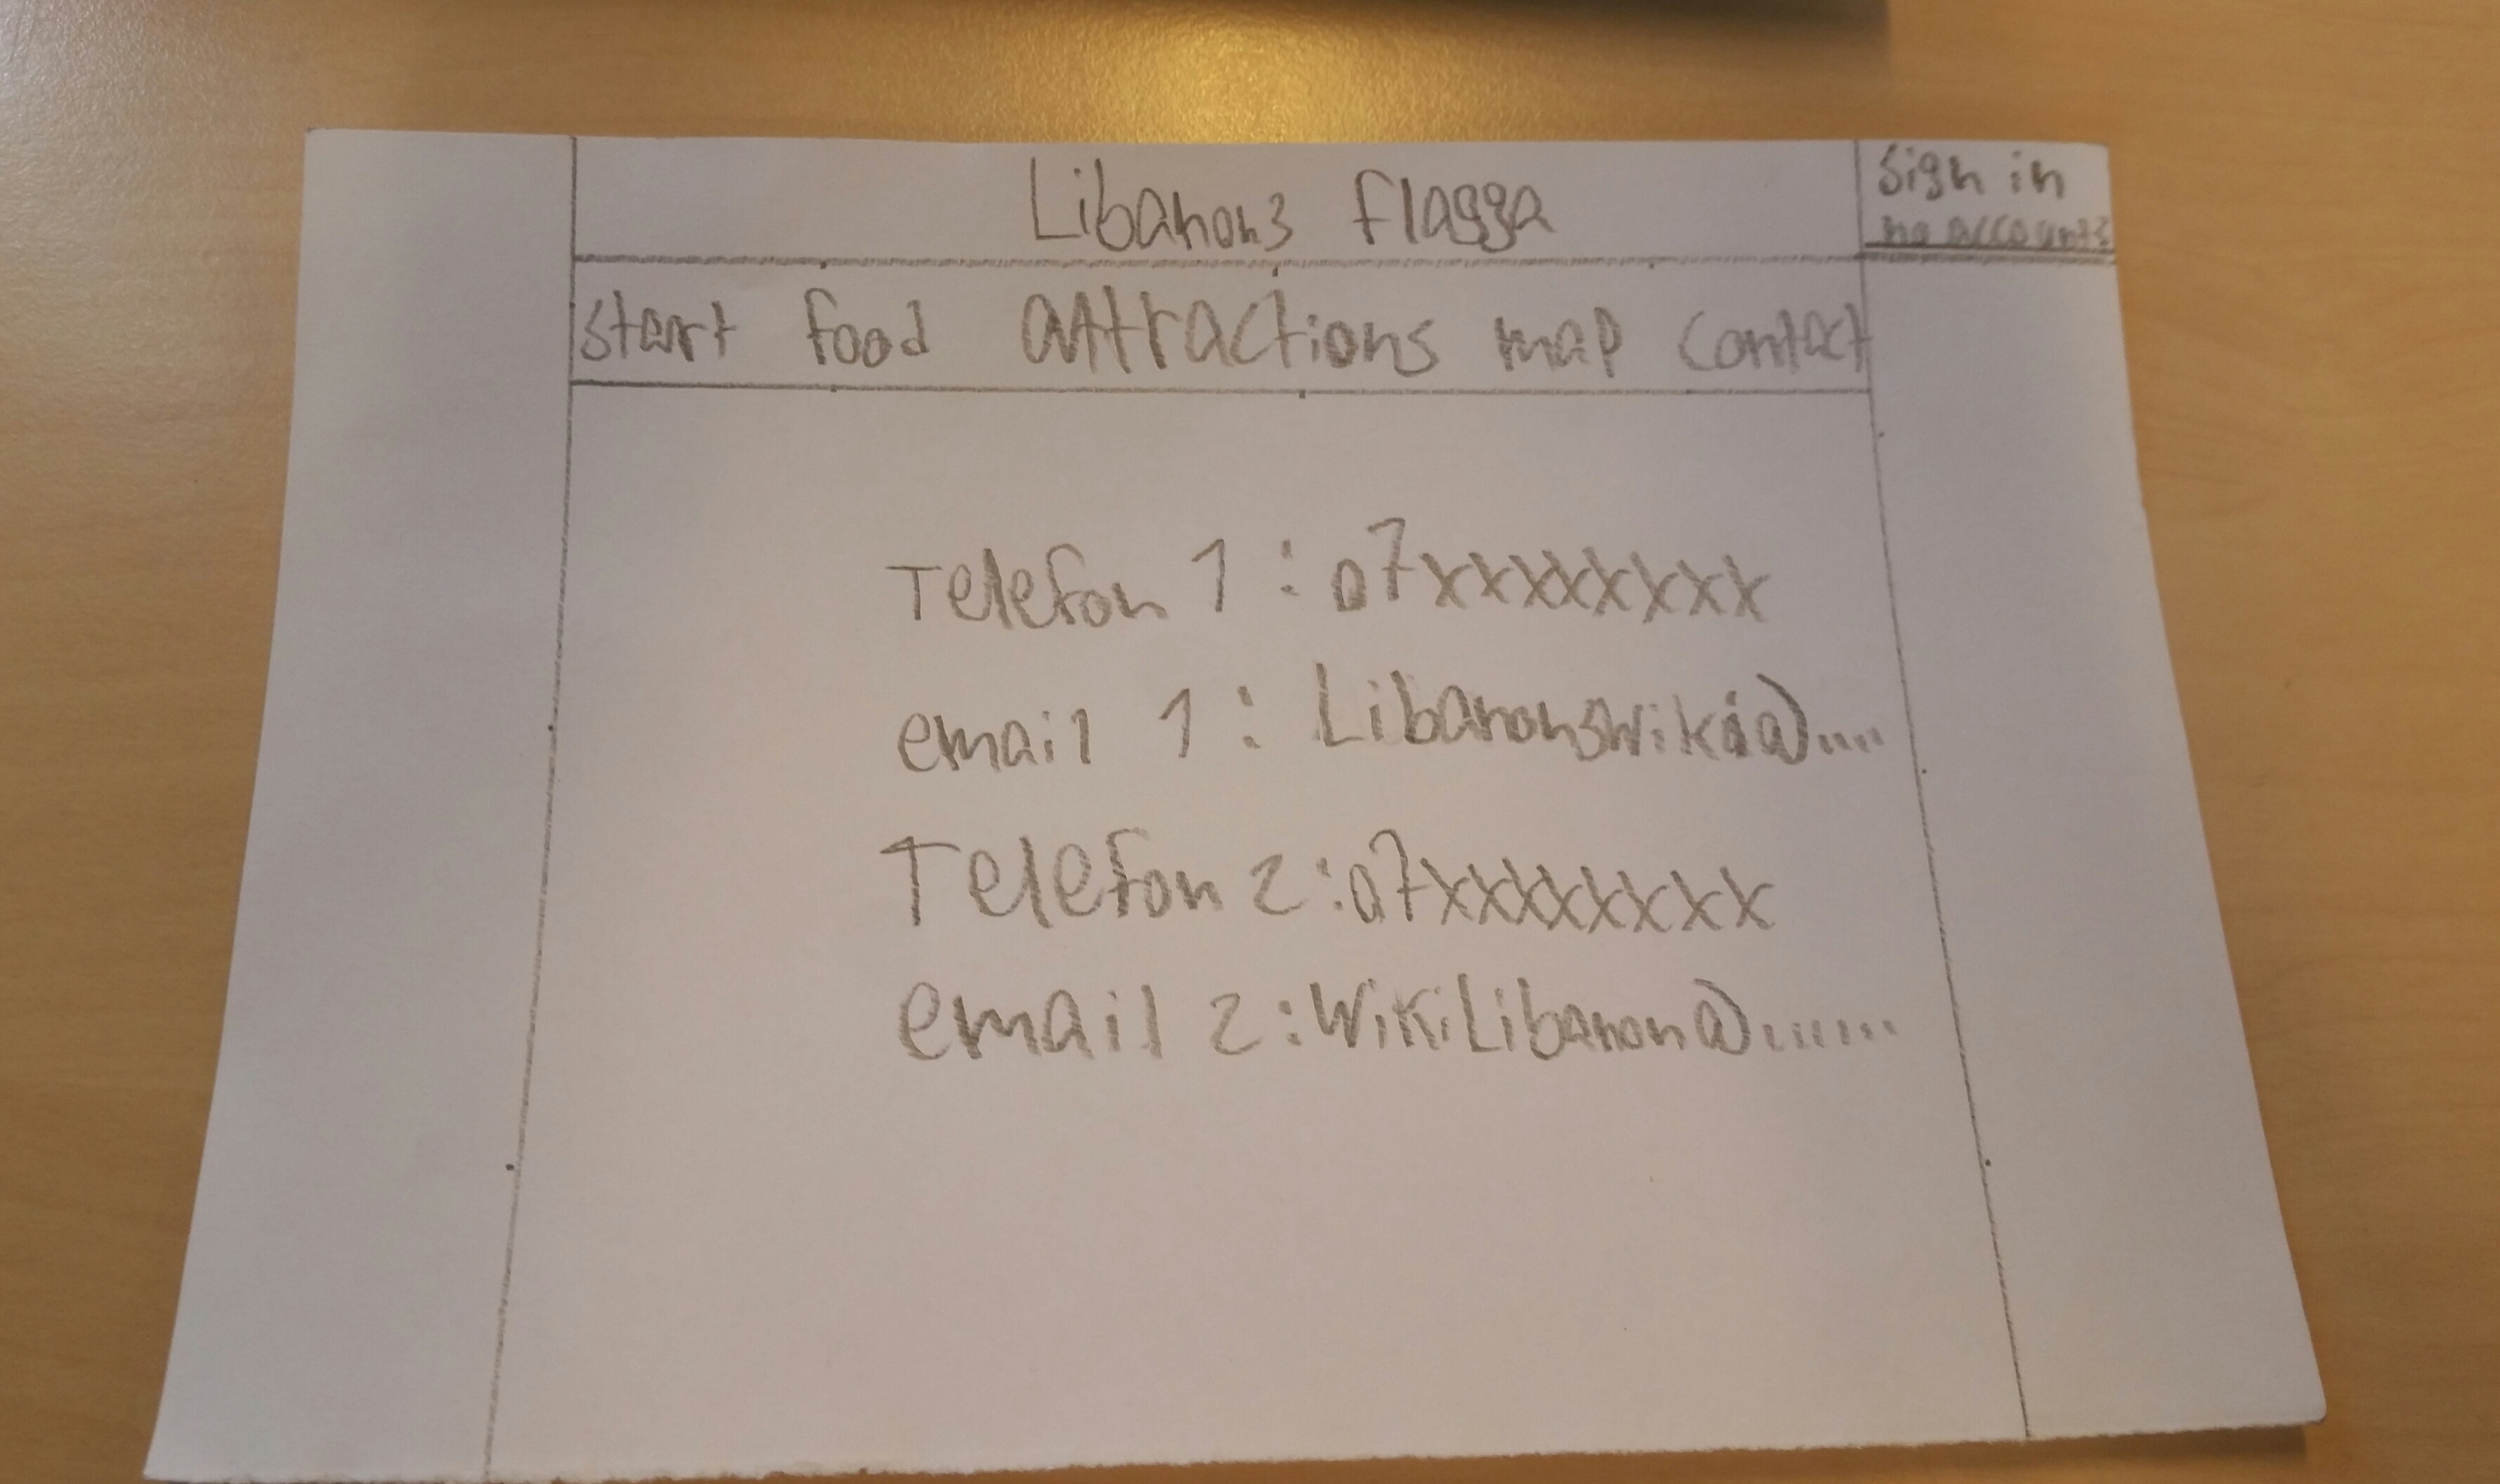 Libanons flagga
Sign in
no account?
start food attractions map contact
Telefon 1: 07xxxxxxxx
email 1: Libanonswiki@....
Telefon 2:07xxxxxxxx
email 2:WikiLibanon@.......